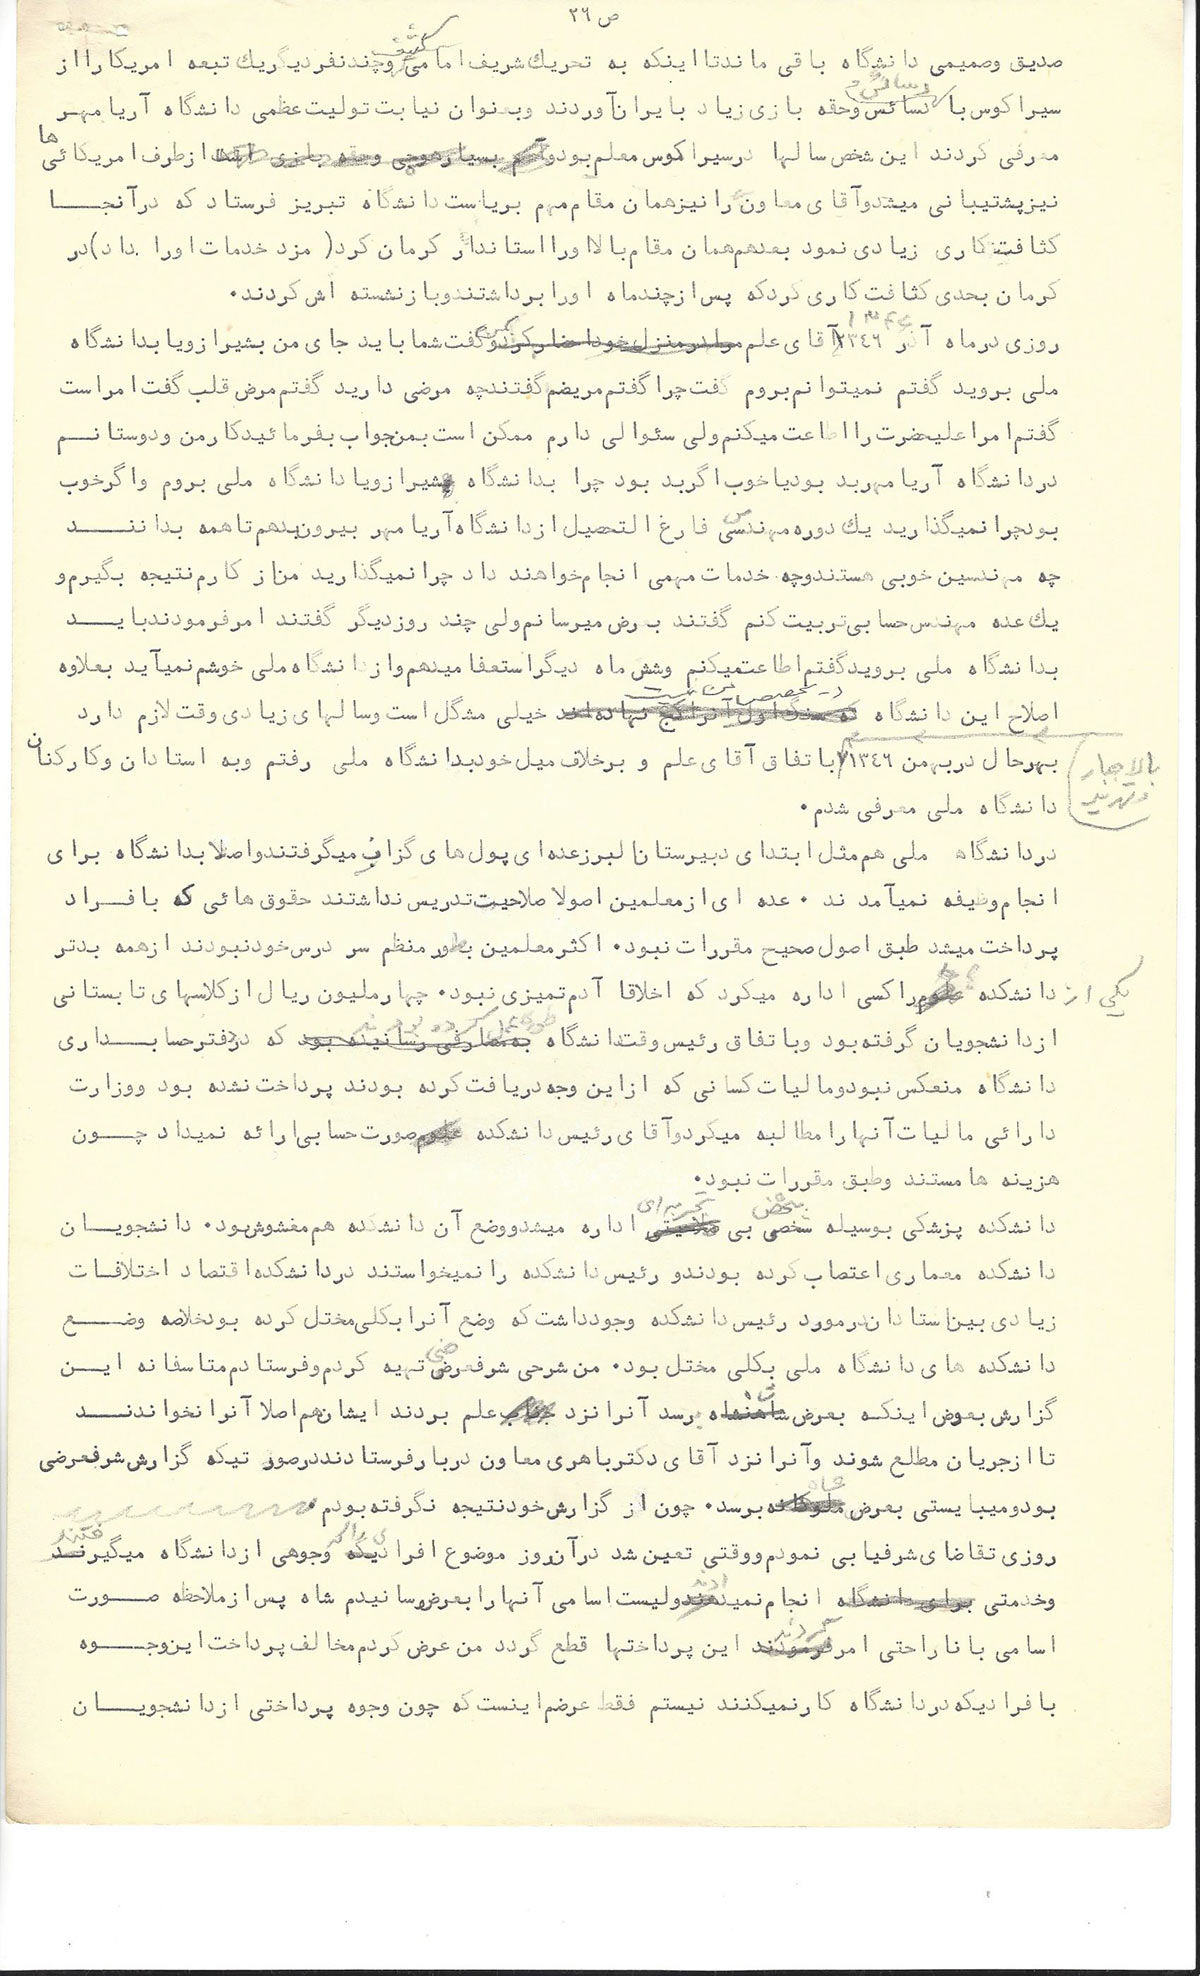 ص ٢٦
صدیق وصمیمی دانشگاه باقی ماندتا اینکه به تحریك شریف امامی کثیف وچندنفردیگریك تبعه امریکارا از
سیراکوس با دسائس وحقه بازی زیاد بایران آوردند وبعنوان نیابت تولیت عظمی دانشگاه آریامهر
معرفی کردند این شخص سالها درسیراکوس معلم بود وآدم بسیار هوچی وحقه بازی است ازطرف امریکائی ها
نیزپشتیبانی میشدوآقای معاون را نیزهمان مقام مهم بریاست دانشگاه تبریز فرستاد که درآنجا
کثافتکاری زیادی نمود بعدهم همان مقام بالا اورا استاندار کرمان کرد( مزد خدمات اورا داد) در
کرمان بحدی کثافت کاری کردکه پس ازچندماه اورا برداشتندوبازنشسته اش کردند.
روزی درماه آذر ١٣٤٦ آقای علم مرا درمنزل خود احضار کرد وگفت شما باید جای من بشیراز ویا بدانشگاه
ملی بروید گفتم نمیتوانم بروم گفت چرا گفتم مریضم گفتند چه مرضی دارید گفتم مرض قلب گفت امراست
گفتم امراعلیحضرت را اطاعت میکنم ولی سئوالی دارم ممکن است بمن جواب بفرمائید کار من ودوستانم
دردانشگاه آریامهربد بود یاخوب اگربد بود چرا بدانشگاه شیراز ویا دانشگاه ملی بروم واگرخوب
بودچرا نمیگذارید یك دوره مهندسی فارغ التحصیل ازدانشگاه آریامهر بیرون بدهم تاهمه بدانند
چه مهندسین خوبی هستندوچه خدمات مهمی انجام خواهند داد چرا نمیگذارید من از کارم نتیجه بگیرم و
یك عده مهندس حسابی تربیت کنم گفتند بعرض میرسانم ولی چند روزدیگر گفتند امر فرمودند باید
بدانشگاه ملی بروید گفتم اطاعت میکنم وشش ماه دیگر استعفا میدهم واز دانشگاه ملی خوشم نمیآید بعلاوه
اصلاح این دانشگاه که سنگ اول آنرا کج نهاده اند خیلی مشگل است وسالهای زیادی وقت لازم دارد
بهرحال دربهمن ١٣٤٦ با تفاق آقای علم و برخلاف میل خود بدانشگاه ملی رفتم وبه استادان وکارکنان
بالاجبار وتهدید
دانشگاه ملی معرفی شدم.
دردانشگاه ملی هم مثل ابتدای دبیرستان البرزعده ای پول های گزاف میگرفتندواصلا بدانشگاه برای
انجام وظیفه نمیآمدند. عده ای ازمعلمین اصولا صلاحیت تدریس نداشتند حقوق هائی که بافراد
پرداخت میشد طبق اصول صحیح مقررات نبود. اکثر معلمین بطور منظم سر درس خودنبودند ازهمه بدتر
یکی از دانشکده علوم راکسی اداره میکرد که اخلاقا آدم تمیزی نبود. چهار ملیون ریال ازکلاسهای تابستانی
ازدانشجویان گرفته بود وباتفاق رئیس وقت دانشگاه بمصارفی رسانیده بود که دردفترحسابداری
دانشگاه منعکس نبود ومالیات کسانی که ازاین وجه دریافت کرده بودند پرداخت نشده بود ووزارت
دارائی مالیات آنها را مطالبه میکردوآقای رئیس دانشکده علوم صورت حسابی ارائه نمیداد چون
هزینه ها مستند وطبق مقررات نبود.
دانشکده پزشکی بوسیله شخصی بی صلاحیتی تجربه ای اداره میشدووضع آن دانشکده هم مغشوش بود. دانشجویان
دانشکده معماری اعتصاب کرده بودندو رئیس دانشکده را نمیخواستند دردانشکده اقتصاد اختلافات
زیادی بین استادان درمورد رئیس دانشکده وجودداشت که وضع آنرا بکلی مختل کرده بود خلاصه وضع
دانشکده های دانشگاه ملی بکلی مختل بود. من شرحی شرفعرضی تهیه کردم وفرستادم متاسفانه این
گزارش بعوض اینکه بعرض شاهنشاه برسد آنرا نزد جناب علم بردند ایشان هم اصلا آنرا نخواندند
تا ازجریان مطلع شوند وآنرا نزد آقای دکترباهری معاون دربارفرستادند درصورتیکه گزارش شرفعرضی
بودومیبایستی بعرض ملوکانه شاه برسد. چون از گزارش خودنتیجه نگرفته بودم.
روزی تقاضای شرفیابی نمودم ووقتی تعین شد درآن روز موضوع افرادیکه وجوهی ازدانشگاه میگیرند
وخدمتی برای دانشگاه انجام نمیدهند ولیست اسامی آنها را بعرض رسانیدم شاه پس ازملاحظه صورت
اسامی با ناراحتی امر فرمودند کردند این پرداختها قطع گردد من عرض کردم مخالف پرداخت این وجوه
بافرادیکه دردانشگاه کارنمیکنند نیستم فقط عرضم اینست که چون وجوه پرداختی ازدانشجویان